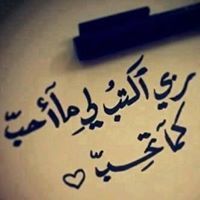 ربي اكتب لي ما أحب
كما تحب